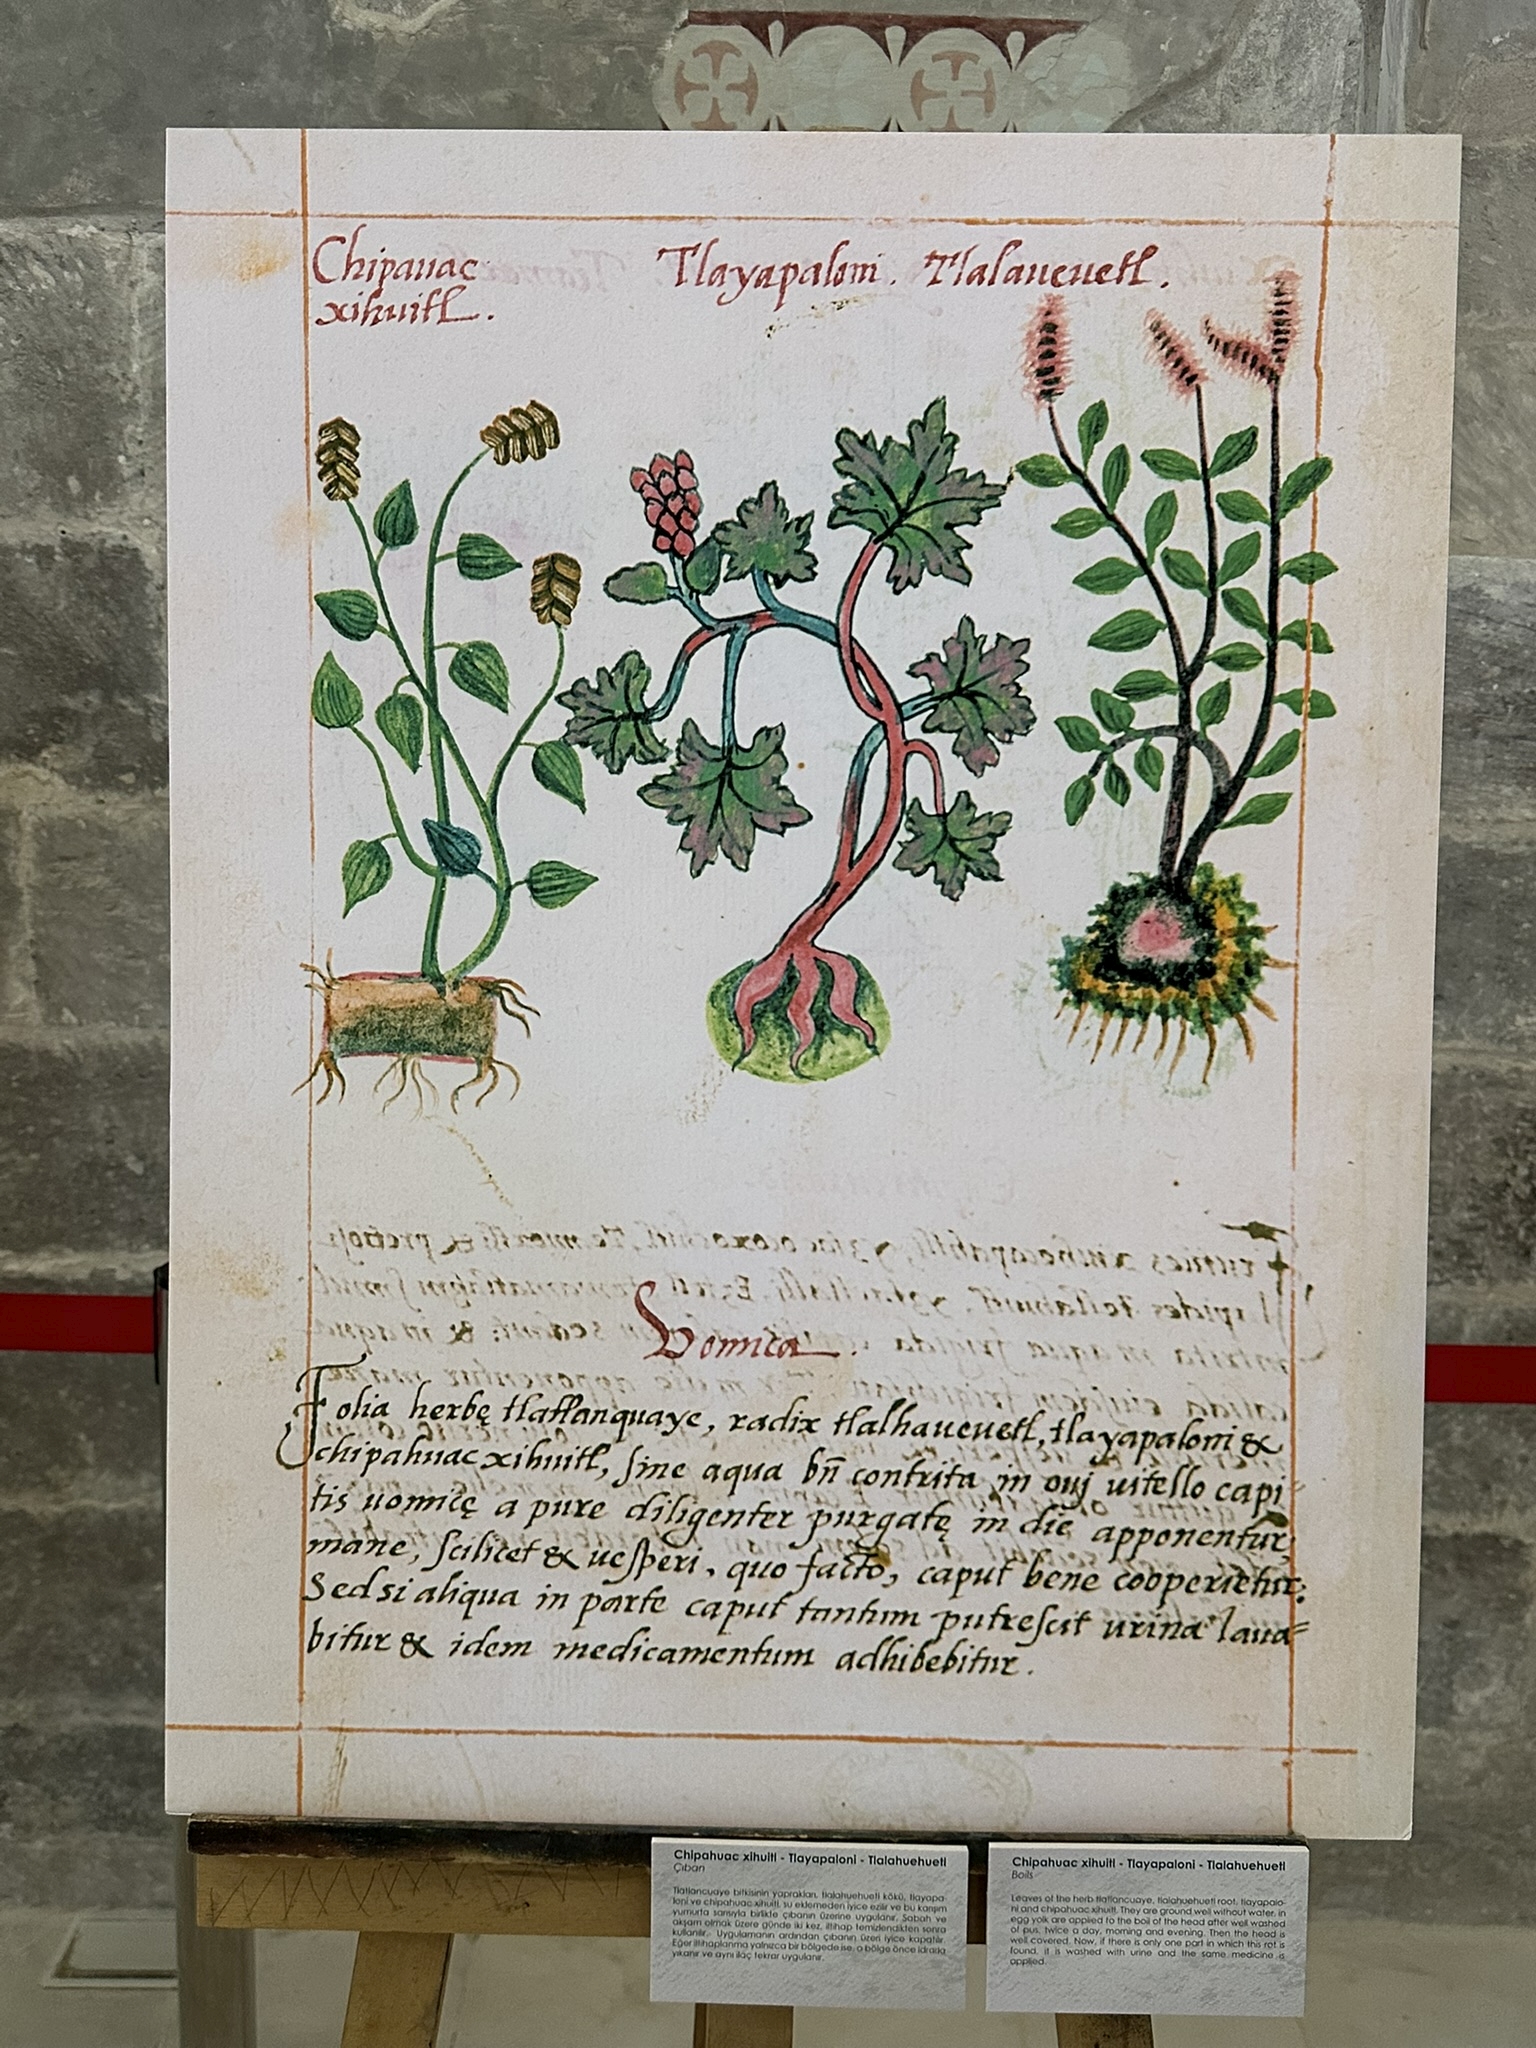 Chipauac
xihuitl.
Tlayapaloni. Tlalaueuetl.
Vomica.
Folia herbę tlatlanquaye, radix tlalhaueuetl, tlayapaloni &
chipahuac xihuitl, sine aqua bñ contrita in oui uitello capi-
tis uomicę a pure diligenter purgatę in die apponentur,
mane, scilicet & uesperi, quo facto, caput bene cooperietur:
Sed si aliqua in parte caput tantum putrescit urina laua-
bitur & idem medicamentum adhibebitur.
Chipahuac xihuitl - Tlayapaloni - Tlalahuehuetl
Çıban
Tlatlancuaye bitkisinin yaprakları, tlalahuehuetl kökü, tlayapa-
loni ve chipahuac xihuitl, su eklemeden iyice ezilir ve bu karışım
yumurta sarısıyla birlikte çıbanın üzerine uygulanır. Sabah ve
akşam olmak üzere günde iki kez, iltihap temizlendikten sonra
kullanılır. Uygulamanın ardından çıbanın üzeri iyice kapatılır.
Eğer iltihaplanma yalnızca bir bölgede ise, o bölge önce idrarla
yıkanır ve aynı ilaç tekrar uygulanır.
Chipahuac xihuitl - Tlayapaloni - Tlalahuehuetl
Boils
Leaves of the herb tlatlancuaye, tlalahuehuetl root, tlayapalo-
ni and chipahuac xihuitl. They are ground well without water, in
egg yolk are applied to the boil of the head after well washed
of pus, twice a day, morning and evening. Then the head is
well covered. Now, if there is only one part in which this rot is
found, it is washed with urine and the same medicine is
applied.